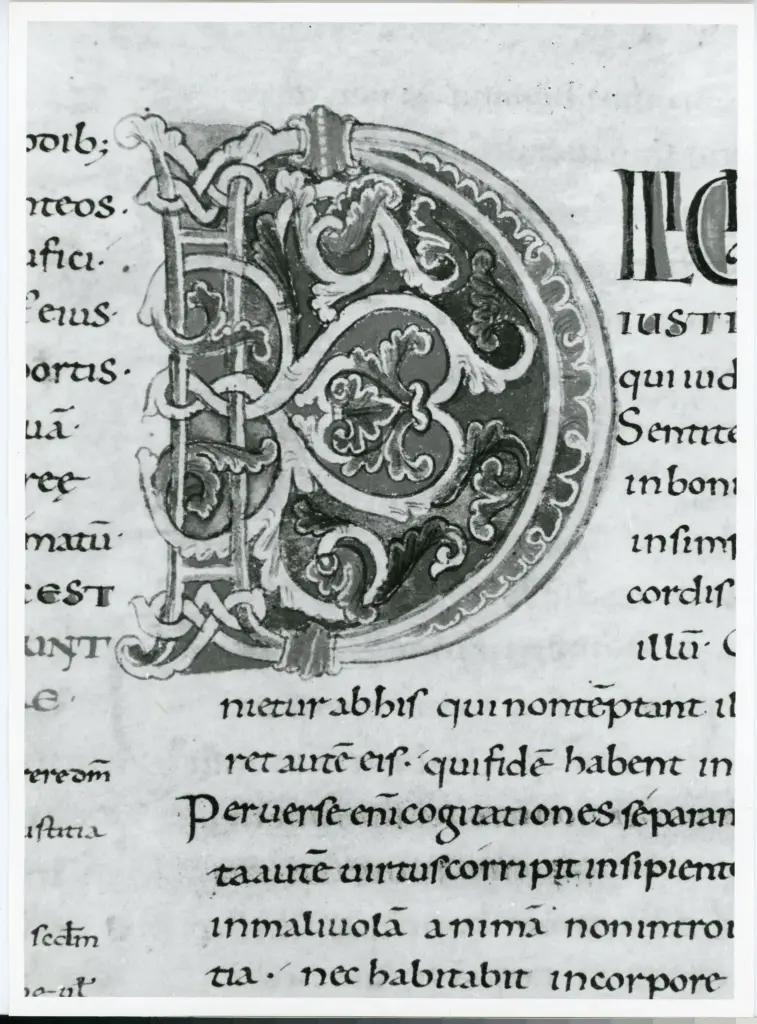 odib;
nteos.
ufici.
eius.
ortis.
uā.
reę
matū.
CEST
UNT
E.
ere dm̄
uſtitia
ſcdm̄
DILIG
IUSTI
qui iud
Sentite
inboni
inſimp
cordiſ
illū.
nietur abhiſ qui non tēptant il
ret autē eiſ. qui fidē habent in
Peruerſe eni cogitationes ſeparan
ta autē uirtuſ corripit inſipient
inmaliuolā animā non introi
tia. nec habitabit incorpore